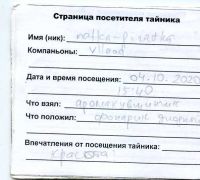 Страница посетителя тайника
Имя (ник): natka-piratka
Компаньоны: vllood
Дата и время посещения: 04.10.2020
15:40
Что взял: аромакувшинчик
Что положил: фонарик
Впечатления от посещения тайника:
Красота!